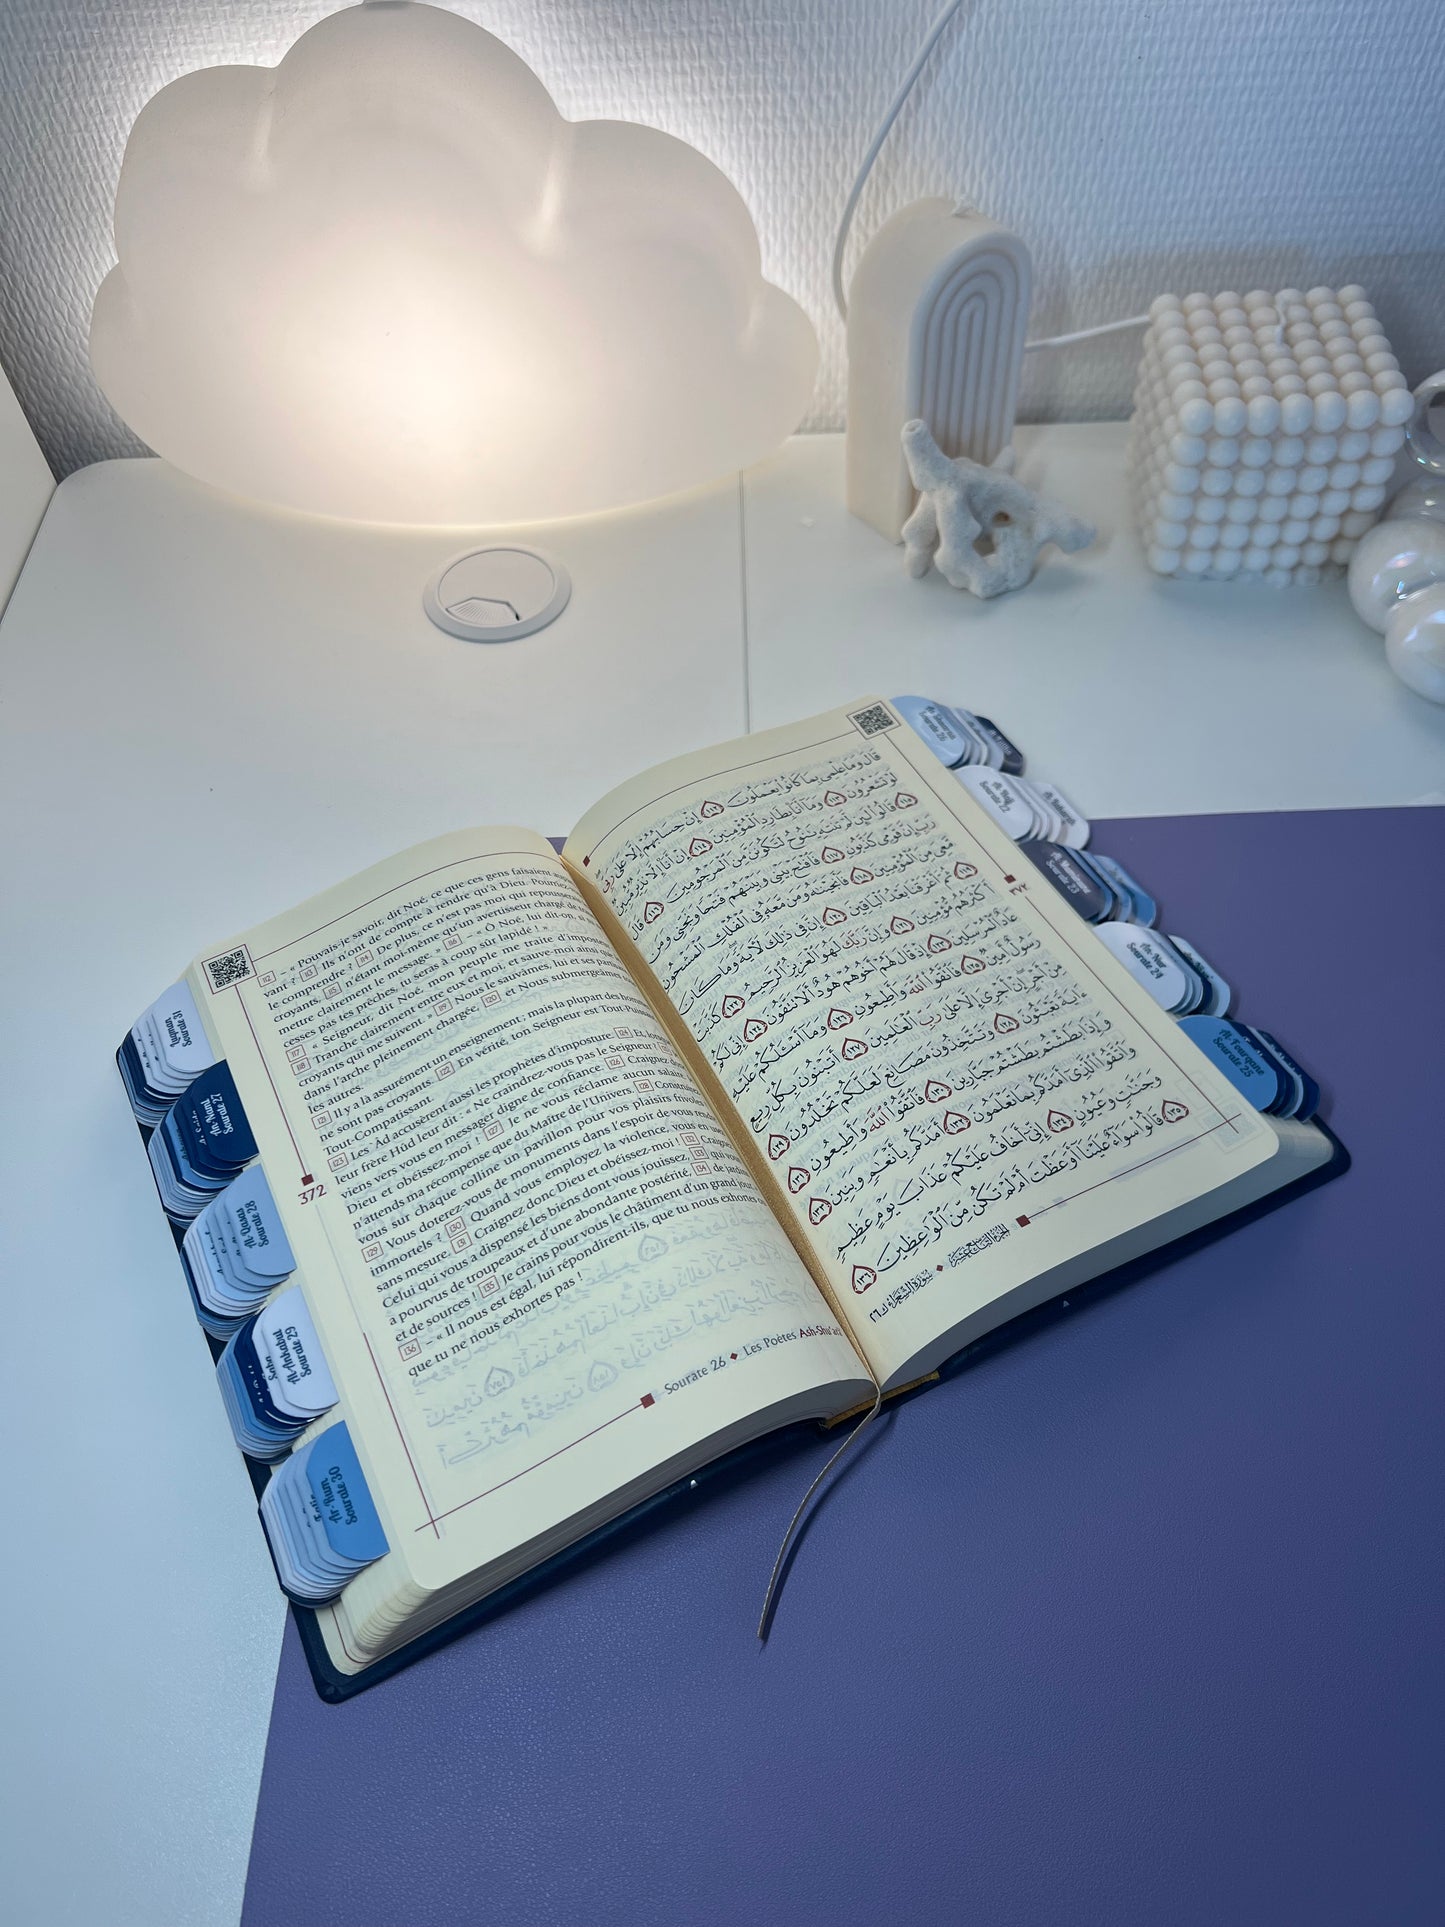 112 – « Pouvais-je savoir, dit Noé, ce que ces gens faisaient
vant ? 113 Ils n'ont de compte à rendre qu'à Dieu.
le comprendre ! 114 De plus, ce n'est pas moi qui
croyants, 115 n'étant moi-même qu'un avertisseur chargé de
mettre clairement le message. » 116 – « Ô Noé, lui dit-on, si
cesses pas tes prêches, tu seras à coup sûr lapidé ! »
117 « Seigneur, dit Noé, mon peuple me traite
118 Tranche clairement entre eux et moi, et sauve-moi ainsi que
croyants qui me suivent. » 119 Nous le sauvâmes, lui et ses
dans l'arche pleinement chargée, 120 et Nous submergeâmes
les autres.
121 Il y a là assurément un enseignement ; mais la plupart des
ne sont pas croyants. 122 En vérité, ton Seigneur est
Tout-Compatissant.
123 Les 'Âd accusèrent aussi les prophètes d'imposture. 124 Et,
leur frère Hûd leur dit : « Ne craindrez-vous pas le Seigneur !
viens vers vous en messager digne de confiance. 126 Craignez
Dieu et obéissez-moi ! 127 Je ne vous réclame aucun
n'attends ma récompense que du Maître de l'Univers. 128
vous sur chaque colline un pavillon pour vos plaisirs frivoles
129 Vous doterez-vous de monuments dans l'espoir de vous
immortels ? 130 Quand vous employez la violence, vous en
sans mesure. 131 Craignez donc Dieu et obéissez-moi ! 132
Celui qui vous a dispensé les biens dont vous jouissez, 133 qui vous
a pourvus de troupeaux et d'une abondante postérité, 134 de
et de sources ! 135 Je crains pour vous le châtiment d'un grand
136 – « Il nous est égal, lui répondirent-ils, que tu nous exhortes
que tu ne nous exhortes pas !
372
Sourate 26 ◆ Les Poètes
قَالَ وَمَا عِلْمِى بِمَا كَانُوا۟ يَعْمَلُونَ ١١٢ إِنْ حِسَابُهُمْ إِلَّا عَلَىٰ رَبِّى
لَوْ تَشْعُرُونَ ١١٣ وَمَآ أَنَا۠ بِطَارِدِ ٱلْمُؤْمِنِينَ ١١٤ إِنْ أَنَا۠ إِلَّا نَذِيرٌ مُّبِينٌ
١١٥ قَالُوا۟ لَئِن لَّمْ تَنتَهِ يَٰنُوحُ لَتَكُونَنَّ مِنَ ٱلْمَرْجُومِينَ ١١٦ قَالَ
رَبِّ إِنَّ قَوْمِى كَذَّبُونِ ١١٧ فَٱفْتَحْ بَيْنِى وَبَيْنَهُمْ فَتْحًا وَنَجِّنِى وَمَن
مَّعِىَ مِنَ ٱلْمُؤْمِنِينَ ١١٨ فَأَنجَيْنَٰهُ وَمَن مَّعَهُۥ فِى ٱلْفُلْكِ ٱلْمَشْحُونِ
١١٩ ثُمَّ أَغْرَقْنَا بَعْدُ ٱلْبَاقِينَ ١٢٠ إِنَّ فِى ذَٰلِكَ لَءَايَةً وَمَا كَانَ
أَكْثَرُهُم مُّؤْمِنِينَ ١٢١ وَإِنَّ رَبَّكَ لَهُوَ ٱلْعَزِيزُ ٱلرَّحِيمُ ١٢٢ كَذَّبَتْ
عَادٌ ٱلْمُرْسَلِينَ ١٢٣ إِذْ قَالَ لَهُمْ أَخُوهُمْ هُودٌ أَلَا تَتَّقُونَ ١٢٤ إِنِّى لَكُمْ
رَسُولٌ أَمِينٌ ١٢٥ فَٱتَّقُوا۟ ٱللَّهَ وَأَطِيعُونِ ١٢٦ وَمَآ أَسْـَٔلُكُمْ عَلَيْهِ
مِنْ أَجْرٍ إِنْ أَجْرِىَ إِلَّا عَلَىٰ رَبِّ ٱلْعَٰلَمِينَ ١٢٧ أَتَبْنُونَ بِكُلِّ رِيعٍ
ءَايَةً تَعْبَثُونَ ١٢٨ وَتَتَّخِذُونَ مَصَانِعَ لَعَلَّكُمْ تَخْلُدُونَ ١٢٩
وَإِذَا بَطَشْتُم بَطَشْتُمْ جَبَّارِينَ ١٣٠ فَٱتَّقُوا۟ ٱللَّهَ وَأَطِيعُونِ ١٣١
وَٱتَّقُوا۟ ٱلَّذِىٓ أَمَدَّكُم بِمَا تَعْلَمُونَ ١٣٢ أَمَدَّكُم بِأَنْعَٰمٍ وَبَنِينَ ١٣٣
وَجَنَّٰتٍ وَعُيُونٍ ١٣٤ إِنِّىٓ أَخَافُ عَلَيْكُمْ عَذَابَ يَوْمٍ عَظِيمٍ
١٣٥ قَالُوا۟ سَوَآءٌ عَلَيْنَآ أَوَعَظْتَ أَمْ لَمْ تَكُن مِّنَ ٱلْوَٰعِظِينَ ١٣٦
٣٧٢
Luqman
Sourate 31
An-Naml
Sourate 27
Al-Qasas
Sourate 28
Saba
Al-Ankabut
Sourate 29
Fatir
Ar-Rum
Sourate 30
Sourate 26
Al-Hajj
Sourate 22
Sourate 23
An-Nur
Sourate 24
Al-Fourqane
Sourate 25